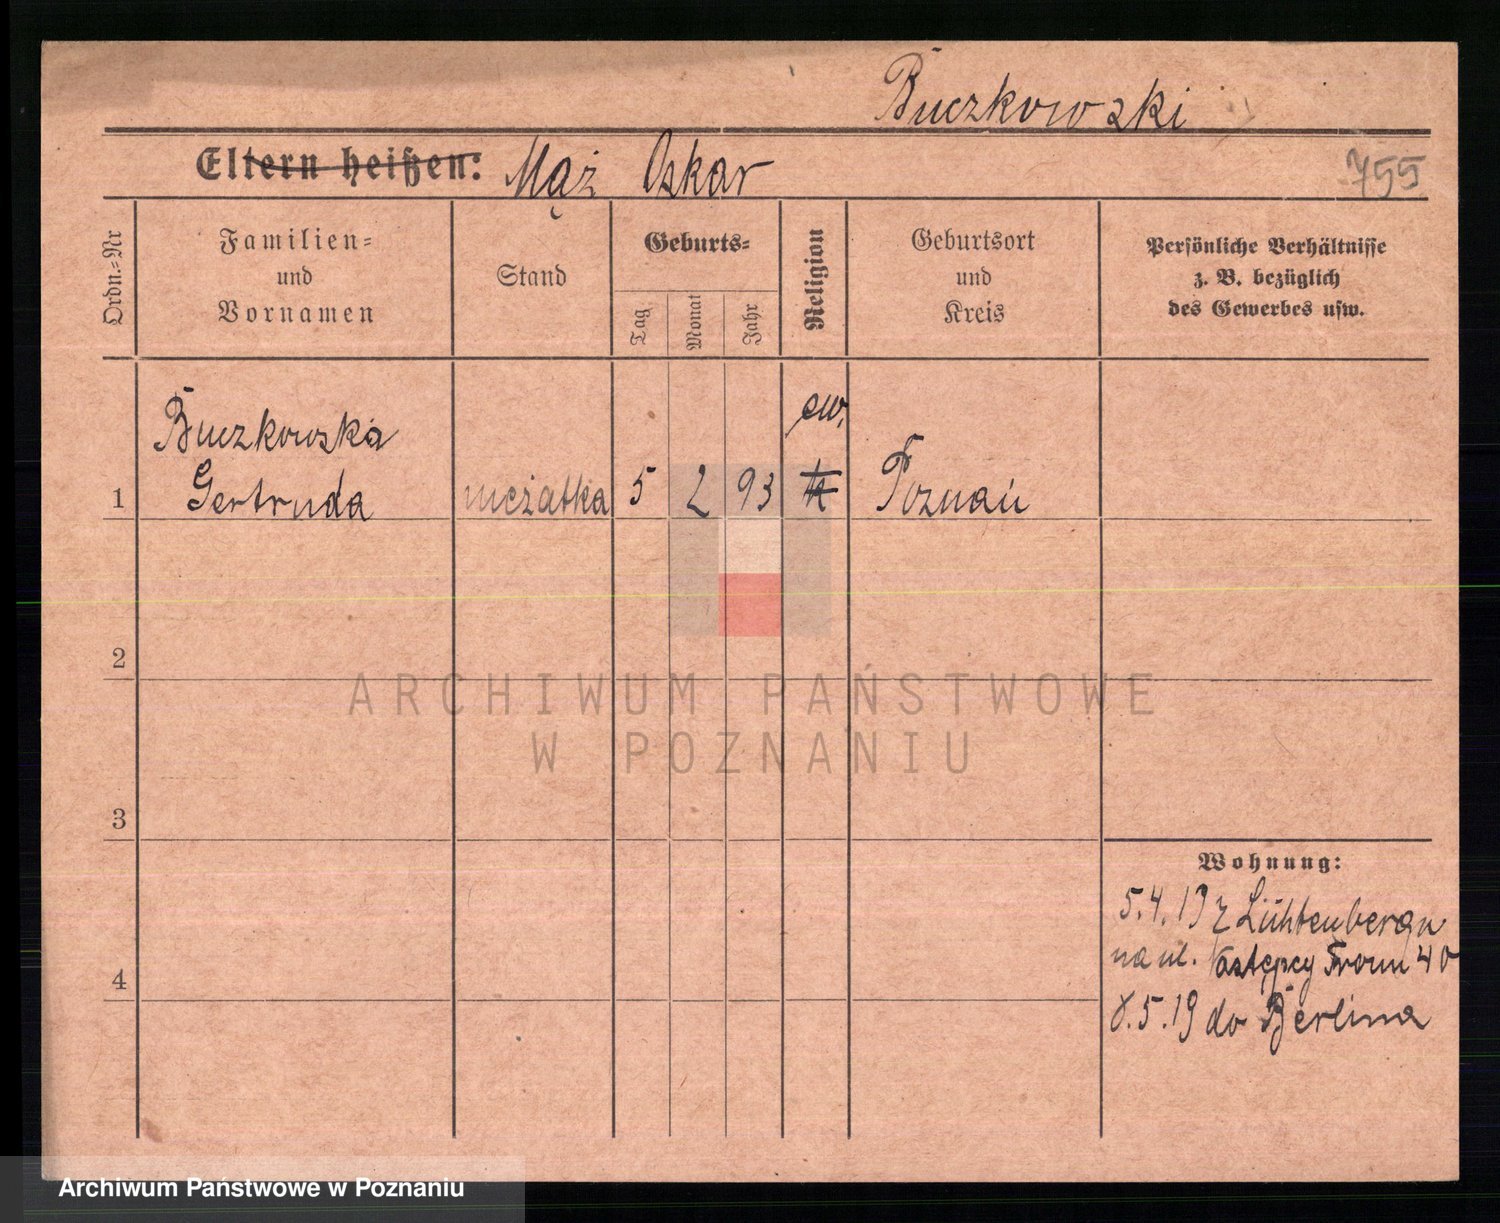 Buczkowski
Eltern heißen: Mąż Oskar
755
Ordn.=Nr
Familien=
und
Vornamen
Stand
Geburts=
Tag
Monat
Jahr
Religion
Geburtsort
und
Kreis
Persönliche Verhältnisse
z. B. bezüglich
des Gewerbes usw.
1
Buczkowska
Gertruda
mężatka
5
2
93
ew.
k
Poznań
2
3
4
Wohnung:
5.4.19 z Lichtenbergu
na ul. 40
8.5.19 do Berlina
ARCHIWUM PAŃSTWOWE
W POZNANIU
Archiwum Państwowe w Poznaniu